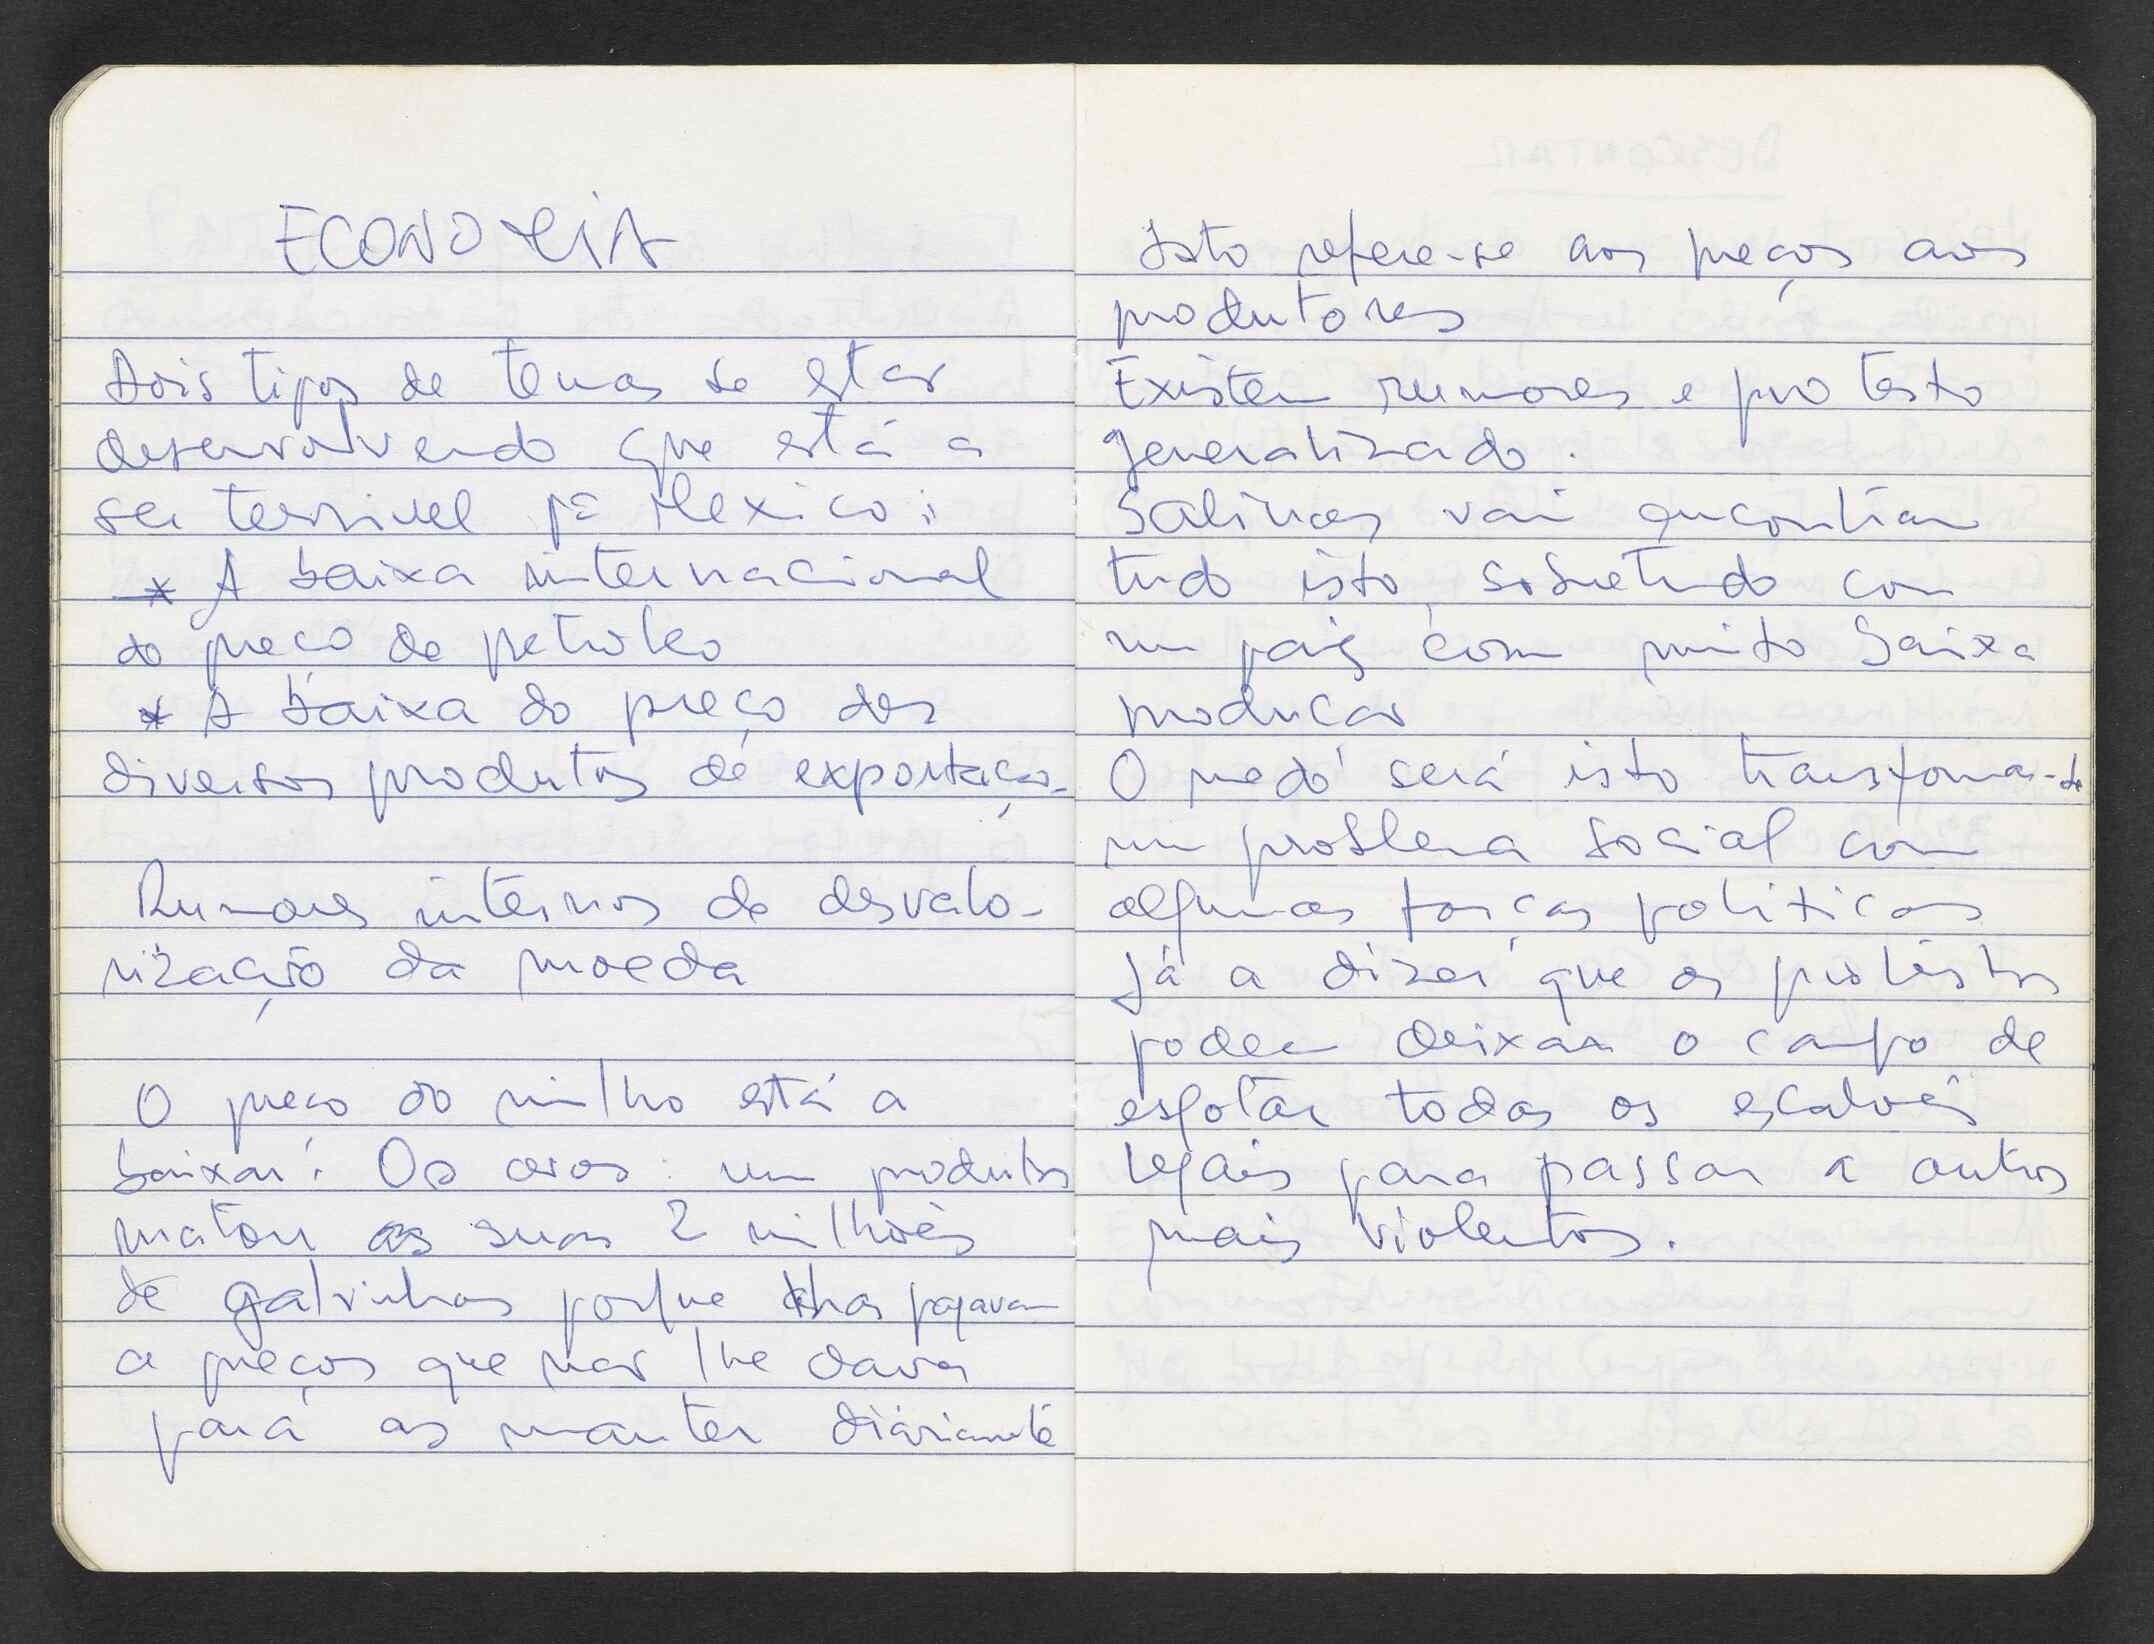 ECONOMIA
Dois tipos de temas se estar
desenvolvendo que está a
ser terrivel pª Mexico:
* A baixa internacional
do preço de petroleo
* A baixa do preço dos
diversos produtos de exportação
Rumores internos de desvalo-
rização da moeda
O preço do milho está a
baixar. Os ovos: um produtor
matou as suas 2 milhões
de galvinhas porque lhas pagavam
a preços que nar lhe dava
para as manter diáriamente
Isto refere-se aos preços aos
produtores
Existem rumores e protesto
generalizado.
Salinas vai encontrar
tudo isto, sobretudo com
um pais com muito baixa
produçar
O medo será isto transformar-se
um problema social com
algumas forças politicas
já a dizer que os protestos
podem deixar o campo de
esgotar todos os escalões
legais para passar a outros
mais violentos.